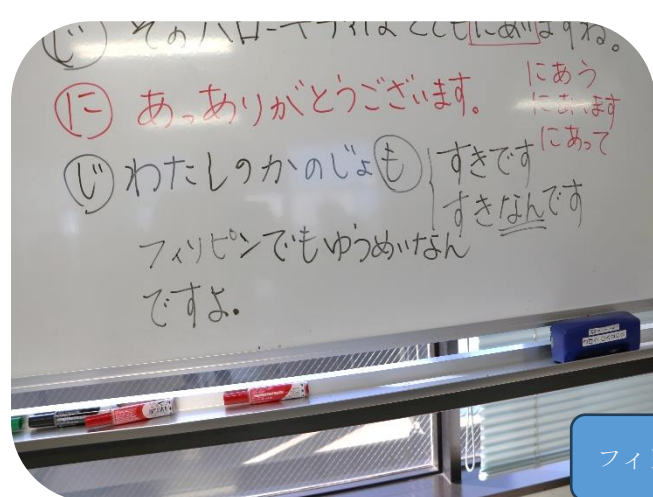 じ そのハローキティはとてもにあいますね。
に あっありがとうございます。
にあう
にあいます
にあって
じ わたしのかのじょも すきです
すきなんです
フィリピンでもゆうめいなん
ですよ。
フィ